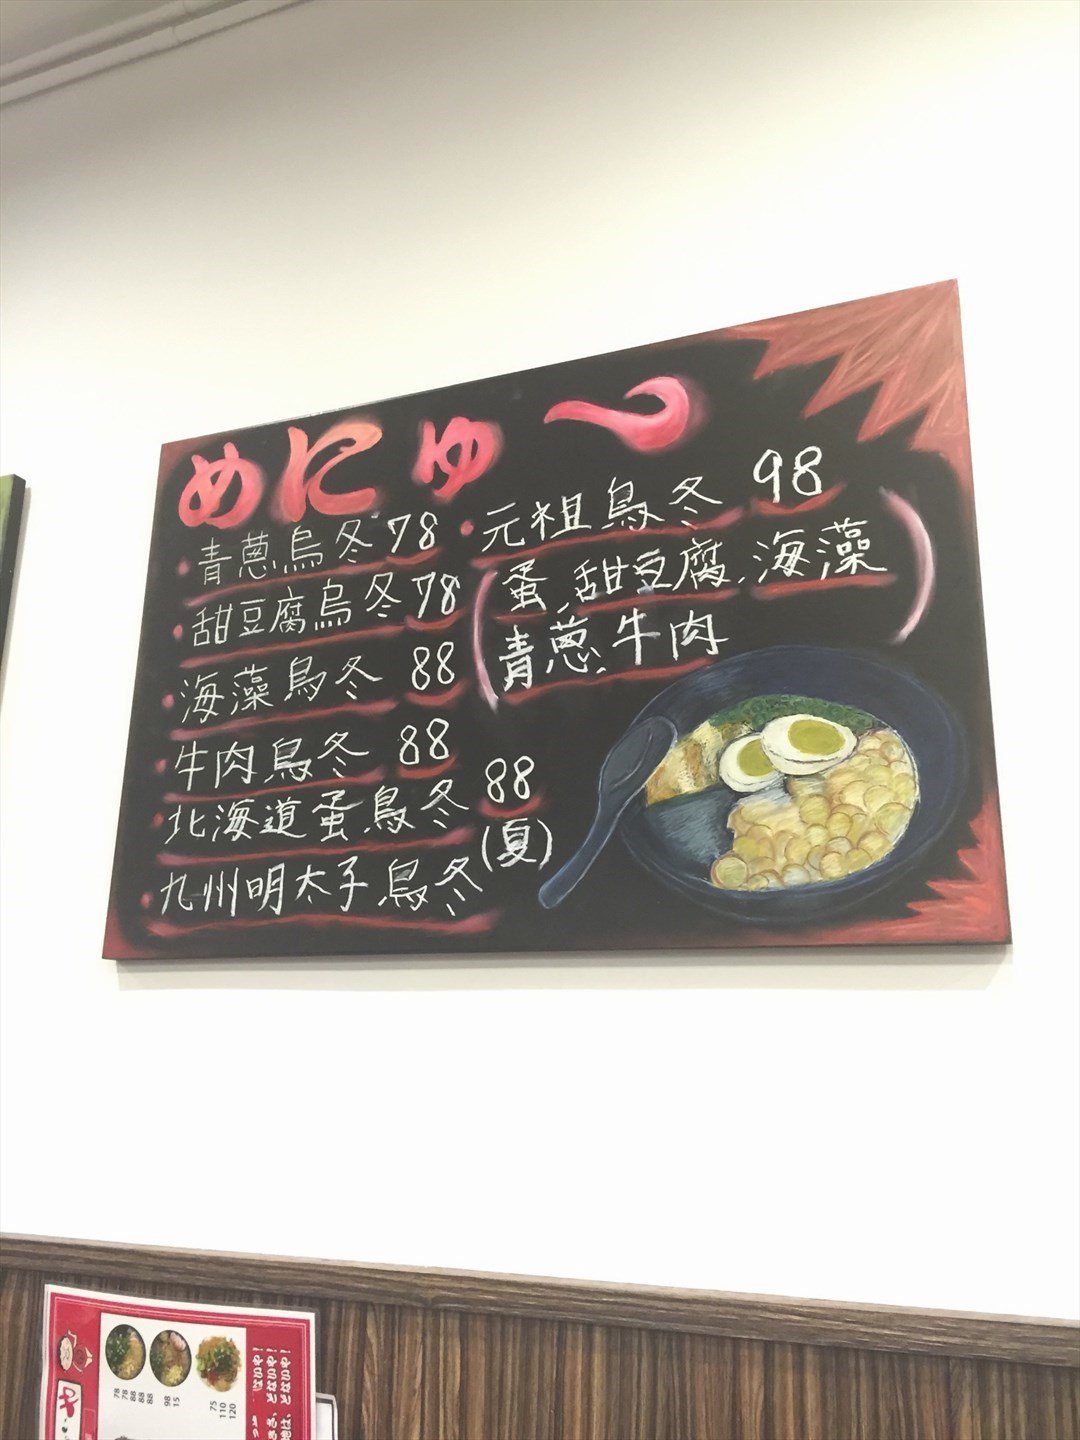 めにゅ～
青蔥烏冬 78
甜豆腐烏冬 78
海藻烏冬 88
牛肉烏冬 88
北海道蛋烏冬 88
九州明太子烏冬 (夏)
元祖烏冬 98
(蛋,甜豆腐,海藻
青蔥,牛肉)
78
78
88
88
88
98
15
75
110
120